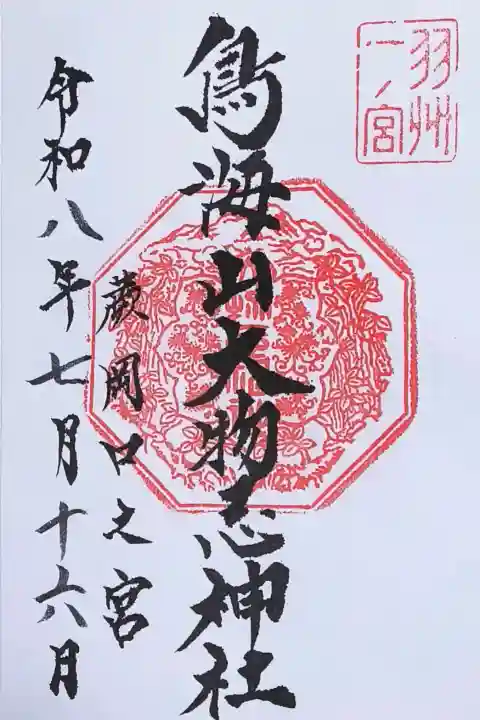 羽州
一ノ宮
鳥海山大物忌神社
蕨岡口之宮
令和八年七月十六日